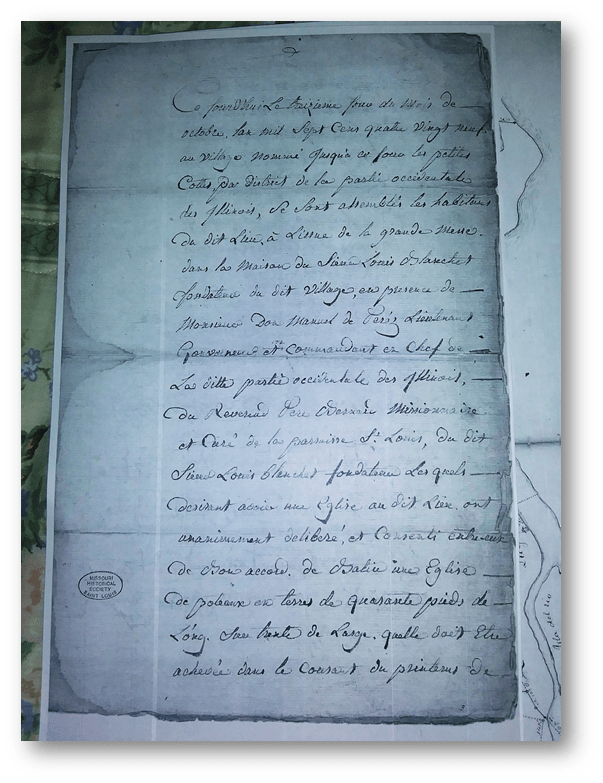 Ce jourd'hui Le treizieme jour du Mois de
octobre, lan mil Sept Cens quatre vingt neuf.
au village nommé jusqua ce jour les petites
Cottes, par district de la partie occidentale
des Illinois, Se Sont assemblés les habitans
Du dit Lieu, à Lissue de la grande Messe.
dans la Maison du Sieur Louis Blanchet
fondateur du dit Village, en presence de
Monsieur Don Manuel de Peréz Lieutenant
Gouverneur et Commandant en Chef de
La ditte partie occidentale des Illinois,
Du Reverend Pere Bernard Missionnaire
et Curé de la parroisse St. Louis, du dit
Sieur Louis blanchet fondateur Les quels
desirant avoir une Eglise au dit Lieu. ont
unanimement deliberé, et Consenti entre eux
de Bon accord. de Batir une Eglise
de poteaux en terres de quarante pieds de
Long. Sur trente de Large. quelle doit Etre
achevée dans le Courant du printems de
MISSOURI
HISTORICAL
SOCIETY
SAINT LOUIS